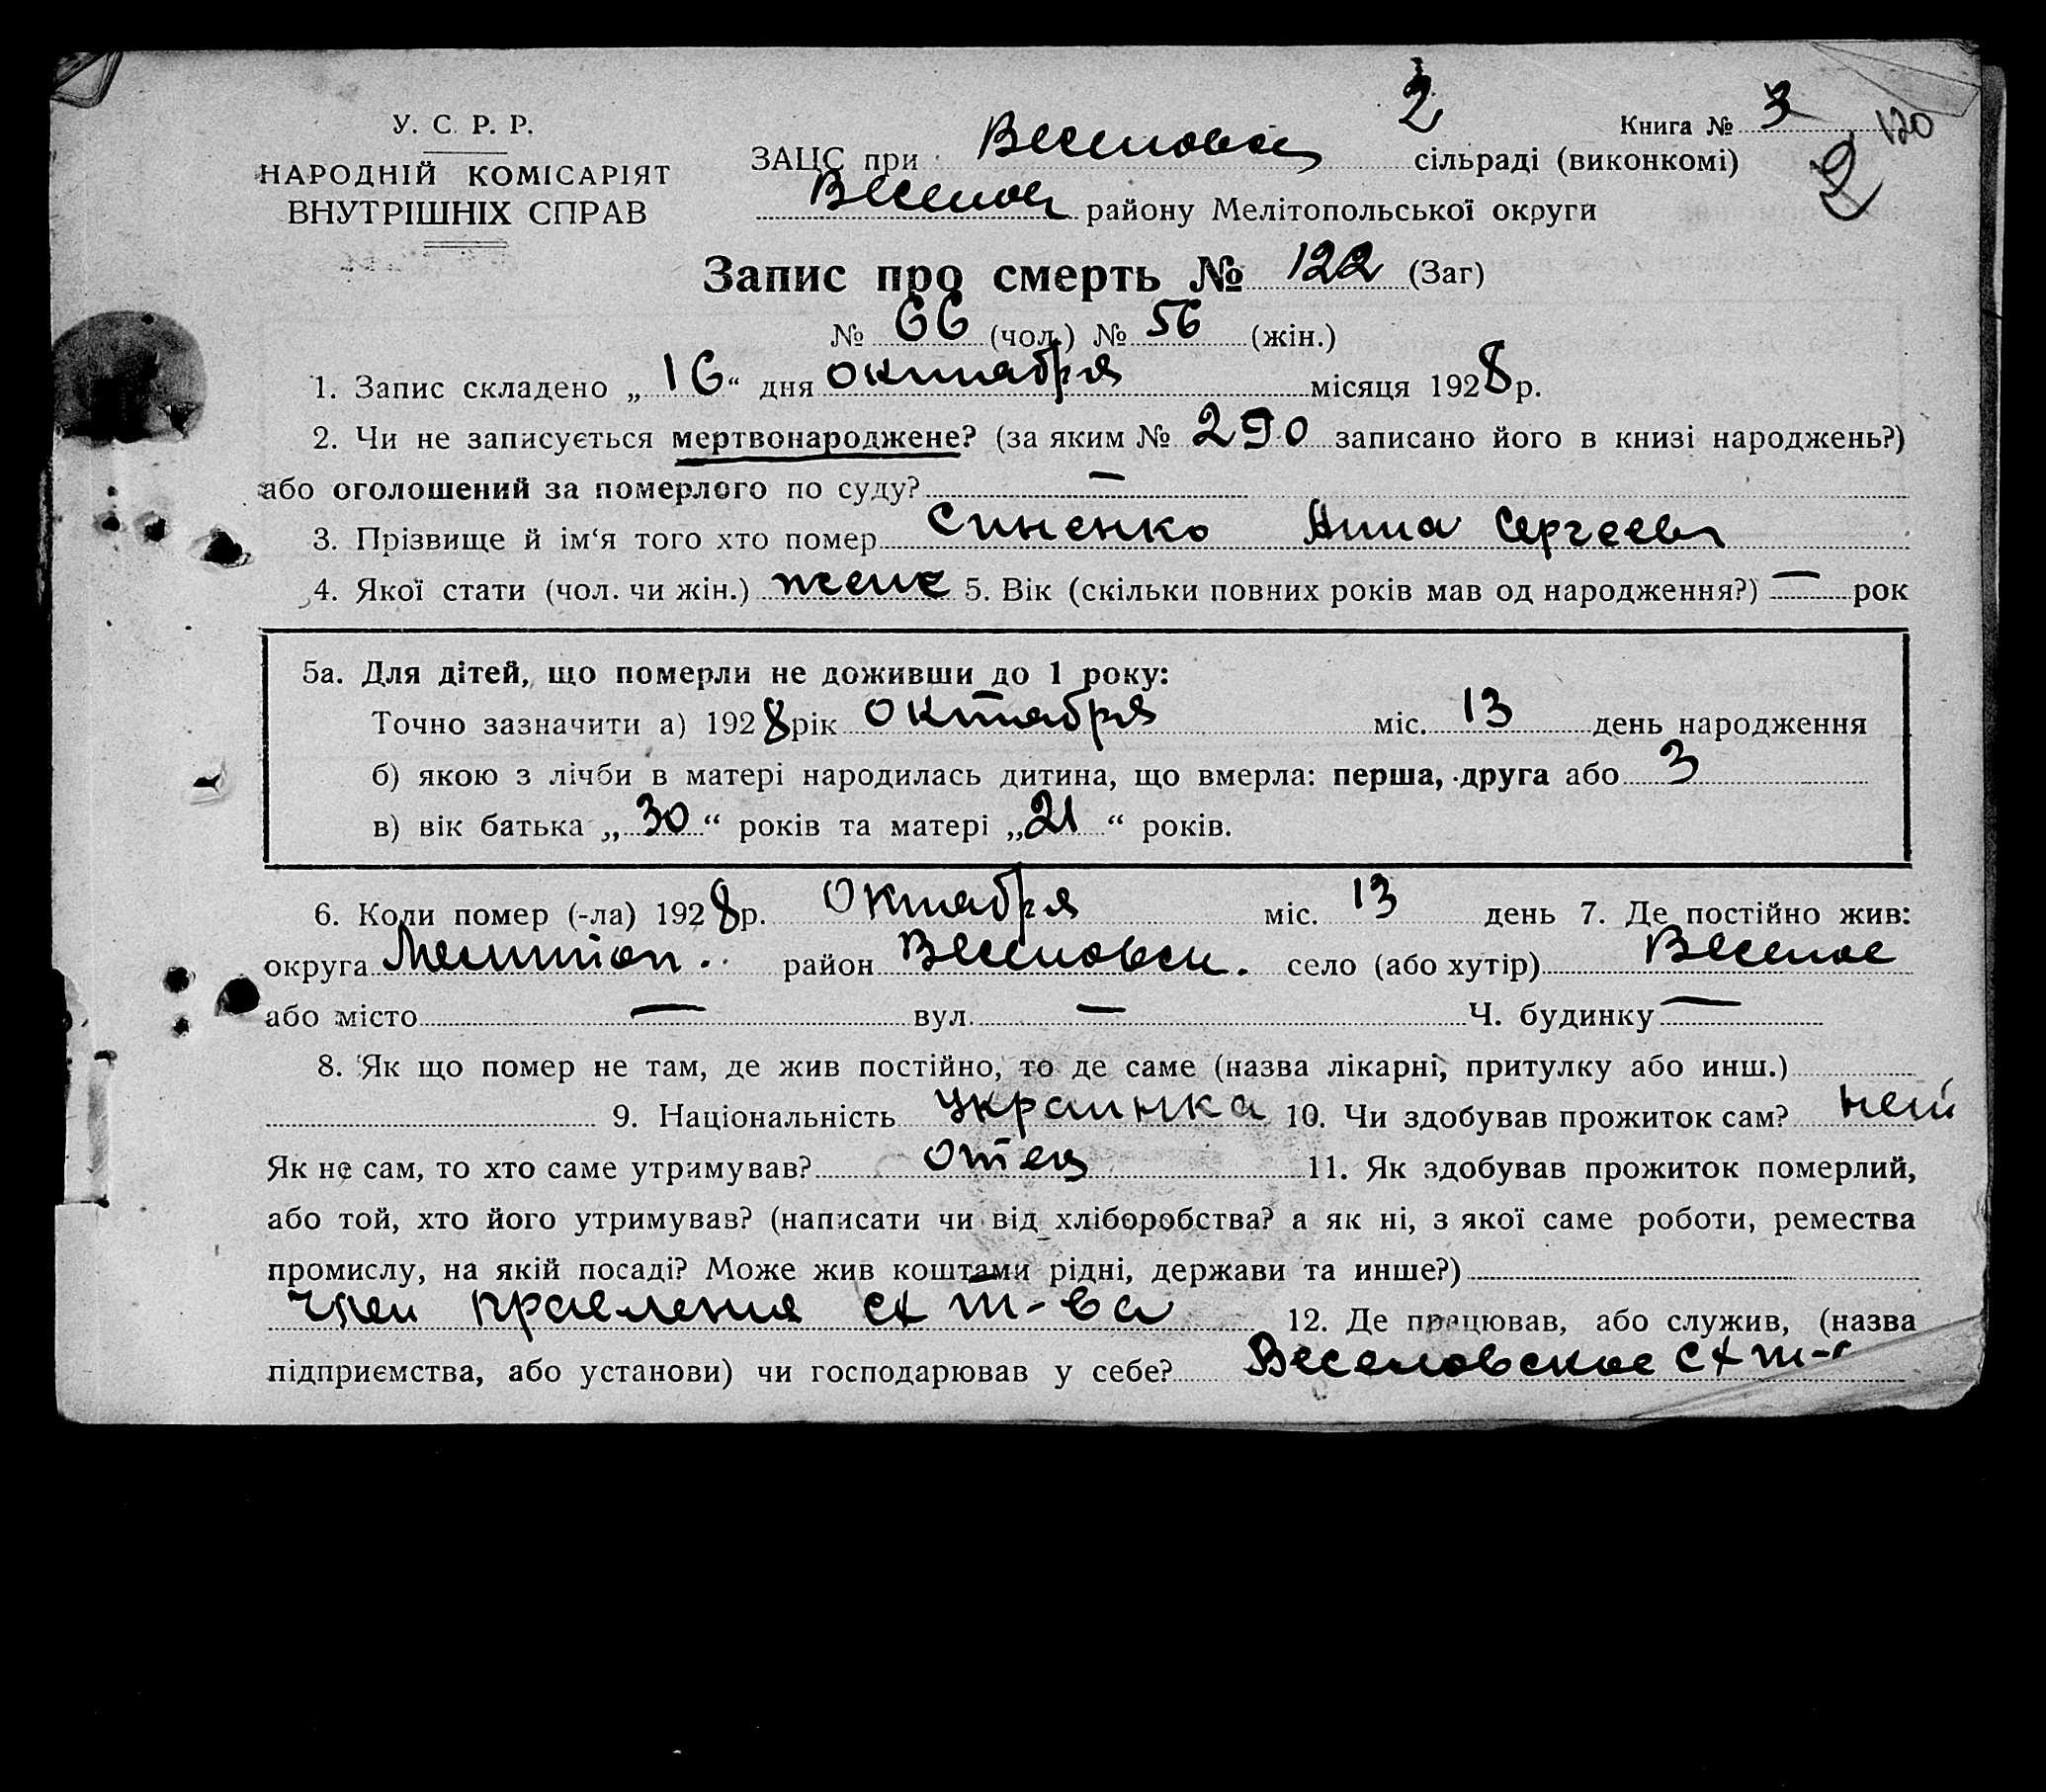 2
У. С. Р. Р.
Книга № 3 120
НАРОДНІЙ КОМІСАРІЯТ
ВНУТРІШНІХ СПРАВ
ЗАЦС при Веселовск сільраді (виконкомі)
2
Веселов району Мелітопольської округи
Запис про смерть № 122 (Заг)
№ 66 (чол.) № 56 (жін.)
1. Запис складено „ 16 “ дня октября місяця 1928 р.
2. Чи не записується мертвонароджене? (за яким № 290 записано його в книзі народжень?)
або оголошений за померлого по суду? —
3. Прізвище й ім‘я того хто помер Синенко Анна Сергеевн
4. Якої стати (чол. чи жін.) женс 5. Вік (скільки повних років мав од народження?) — рок
5а. Для дітей, що померли не доживши до 1 року:
Точно зазначити а) 1928 рік октября міс. 13 день народження
б) якою з лічби в матері народилась дитина, що вмерла: перша, друга або 3
в) вік батька „ 30 “ років та матері „ 21 “ років.
6. Коли помер (-ла) 1928 р. Октября міс. 13 день 7. Де постійно жив:
округа Мелитоп.. район Веселовск. село (або хутір) Веселое
або місто — вул. — Ч. будинку —
8. Як що помер не там, де жив постійно, то де саме (назва лікарні, притулку або инш.)
9. Національність Украинка 10. Чи здобував прожиток сам? нет
Як не сам, то хто саме утримував? отец 11. Як здобував прожиток померлий,
або той, хто його утримував? (написати чи від хліборобства? а як ні, з якої саме роботи, ремества
промислу, на якій посаді? Може жив коштами рідні, держави та инше?)
член правления сх т-ва 12. Де працював, або служив, (назва
підприємства, або установи) чи господарював у себе? Веселовское сх т-